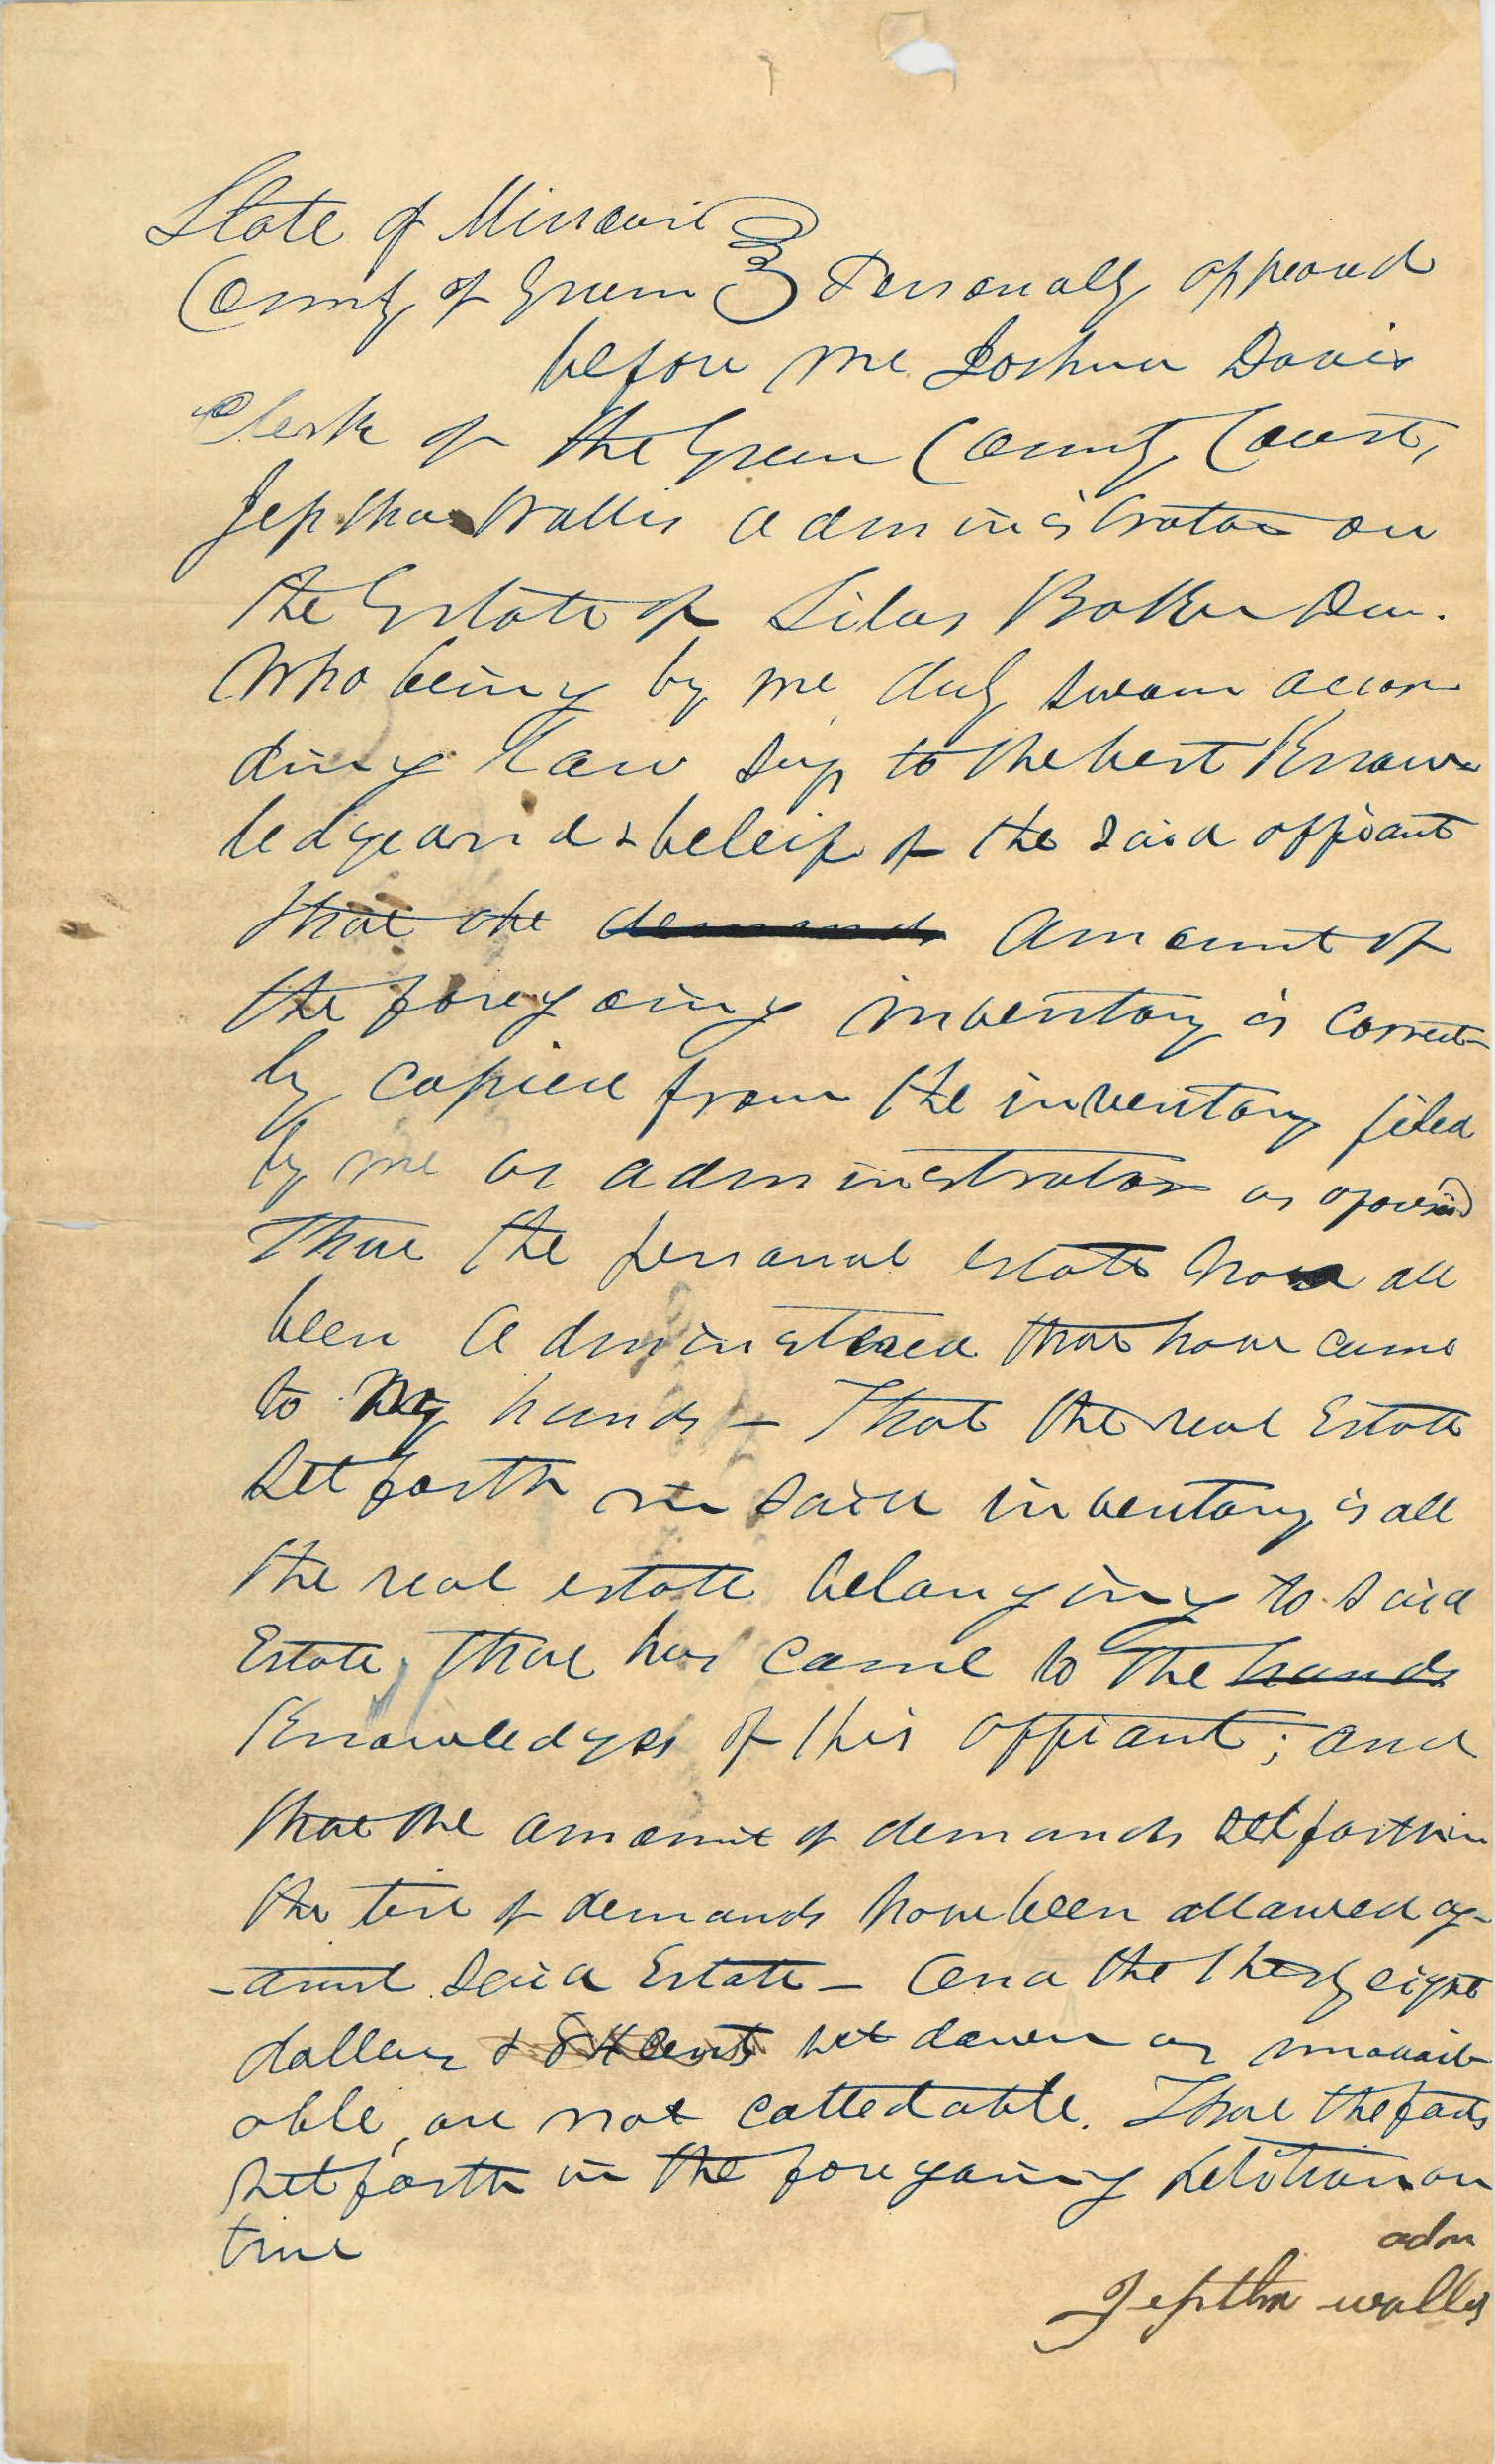 State of Missouri
County of Green } Personally appeard
before me Joshua Davis
Clerk of the Green County Court,
Jeptha Wallis administrator on
the Estate of Silas Baker Dec.
Who being by me duly sworn accor
ding law says to the best Know
ledge and & beleif of the said affiant
that the demands amount of
the foregoing inventory is correct
ly copied from the inventory filed
by me as administrator as
That the personal estate have all
been administered that have came
to my hands – That the real Estate
set forth in said inventory is all
the real estate belonging to said
Estate, that has came to the hands
Knowledge of this affiant; and
that the amount of demands set forth in
the list of demands have been allowed ag-
-ainst said Estate – And the thirty eight
dollars & 84 cents set down as unavail
able, are not collectable. That the facts
set forth in the foregoing petition are
true
adm
Jeptha wallis